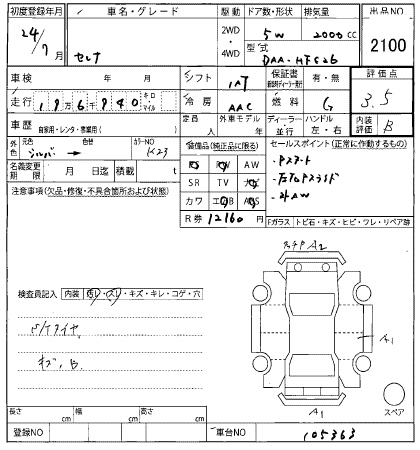 初度登録年月 車名・グレード 駆動 ドア数・形状 排気量 出品NO
24/7月 セレナ 2WD・4WD 5W 2000cc 2100
型式 DAA-HFC26
車検 年 月 シフト IAT 保証書 有・無 評価点
走行 196,940 キロ マイル 冷房 AAC 燃料 G 3.5
車歴 自家用・レンタ・事業用( ) 定員 人 外車モデル 年 ディーラー・並行 ハンドル 左・右 内装評価 B
外色 元色 シルバー → 色替 カラーNO K23
名義変更期限 月 日迄 積載 t
装備品(純正品に限る)
PS PW AW
SR TV ナビ
カワ エアB ABS
R券 12160 円
セールスポイント(正常に作動するもの)
・Pスタート
・左右Pスライド
・外AW
注意事項(欠品・修復・不具合箇所および状態)
Fガラス トビ石・キズ・ヒビ・ワレ・リペア跡
検査員記入 内装 ヨゴレ・スレ・キズ・キレ・コゲ・穴
キズ、B.
A2
A1
A1
スペア
長さ cm 幅 cm 高さ cm
登録NO 車台NO 105363